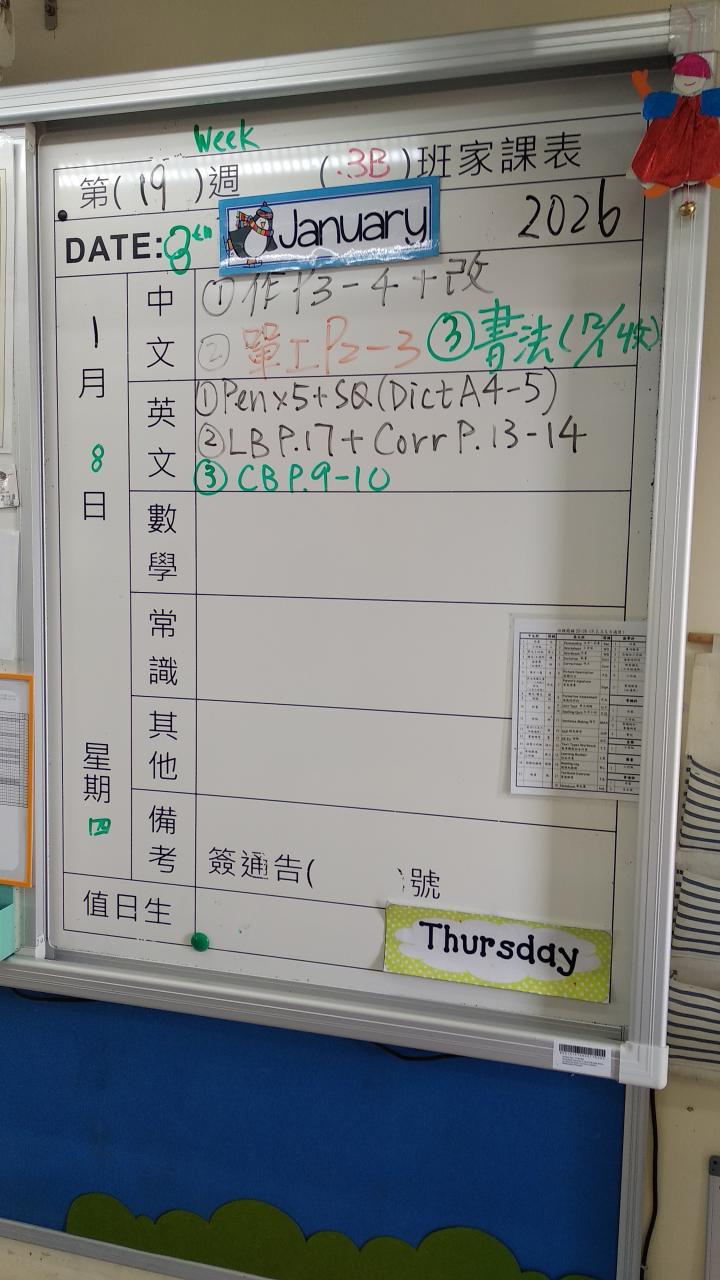 Week
第(19)週 (3B)班家課表
DATE: 8th January 2026
1月8日 星期四
中文
①作P3-4+改
②單工P2-3 ③書法(12/1 4交)
英文
①Pen x5+SQ(Dict A4-5)
②LB P.17+Corr P.13-14
③CB P.9-10
數學
常識
其他
備考
簽通告( )號
值日生
Thursday